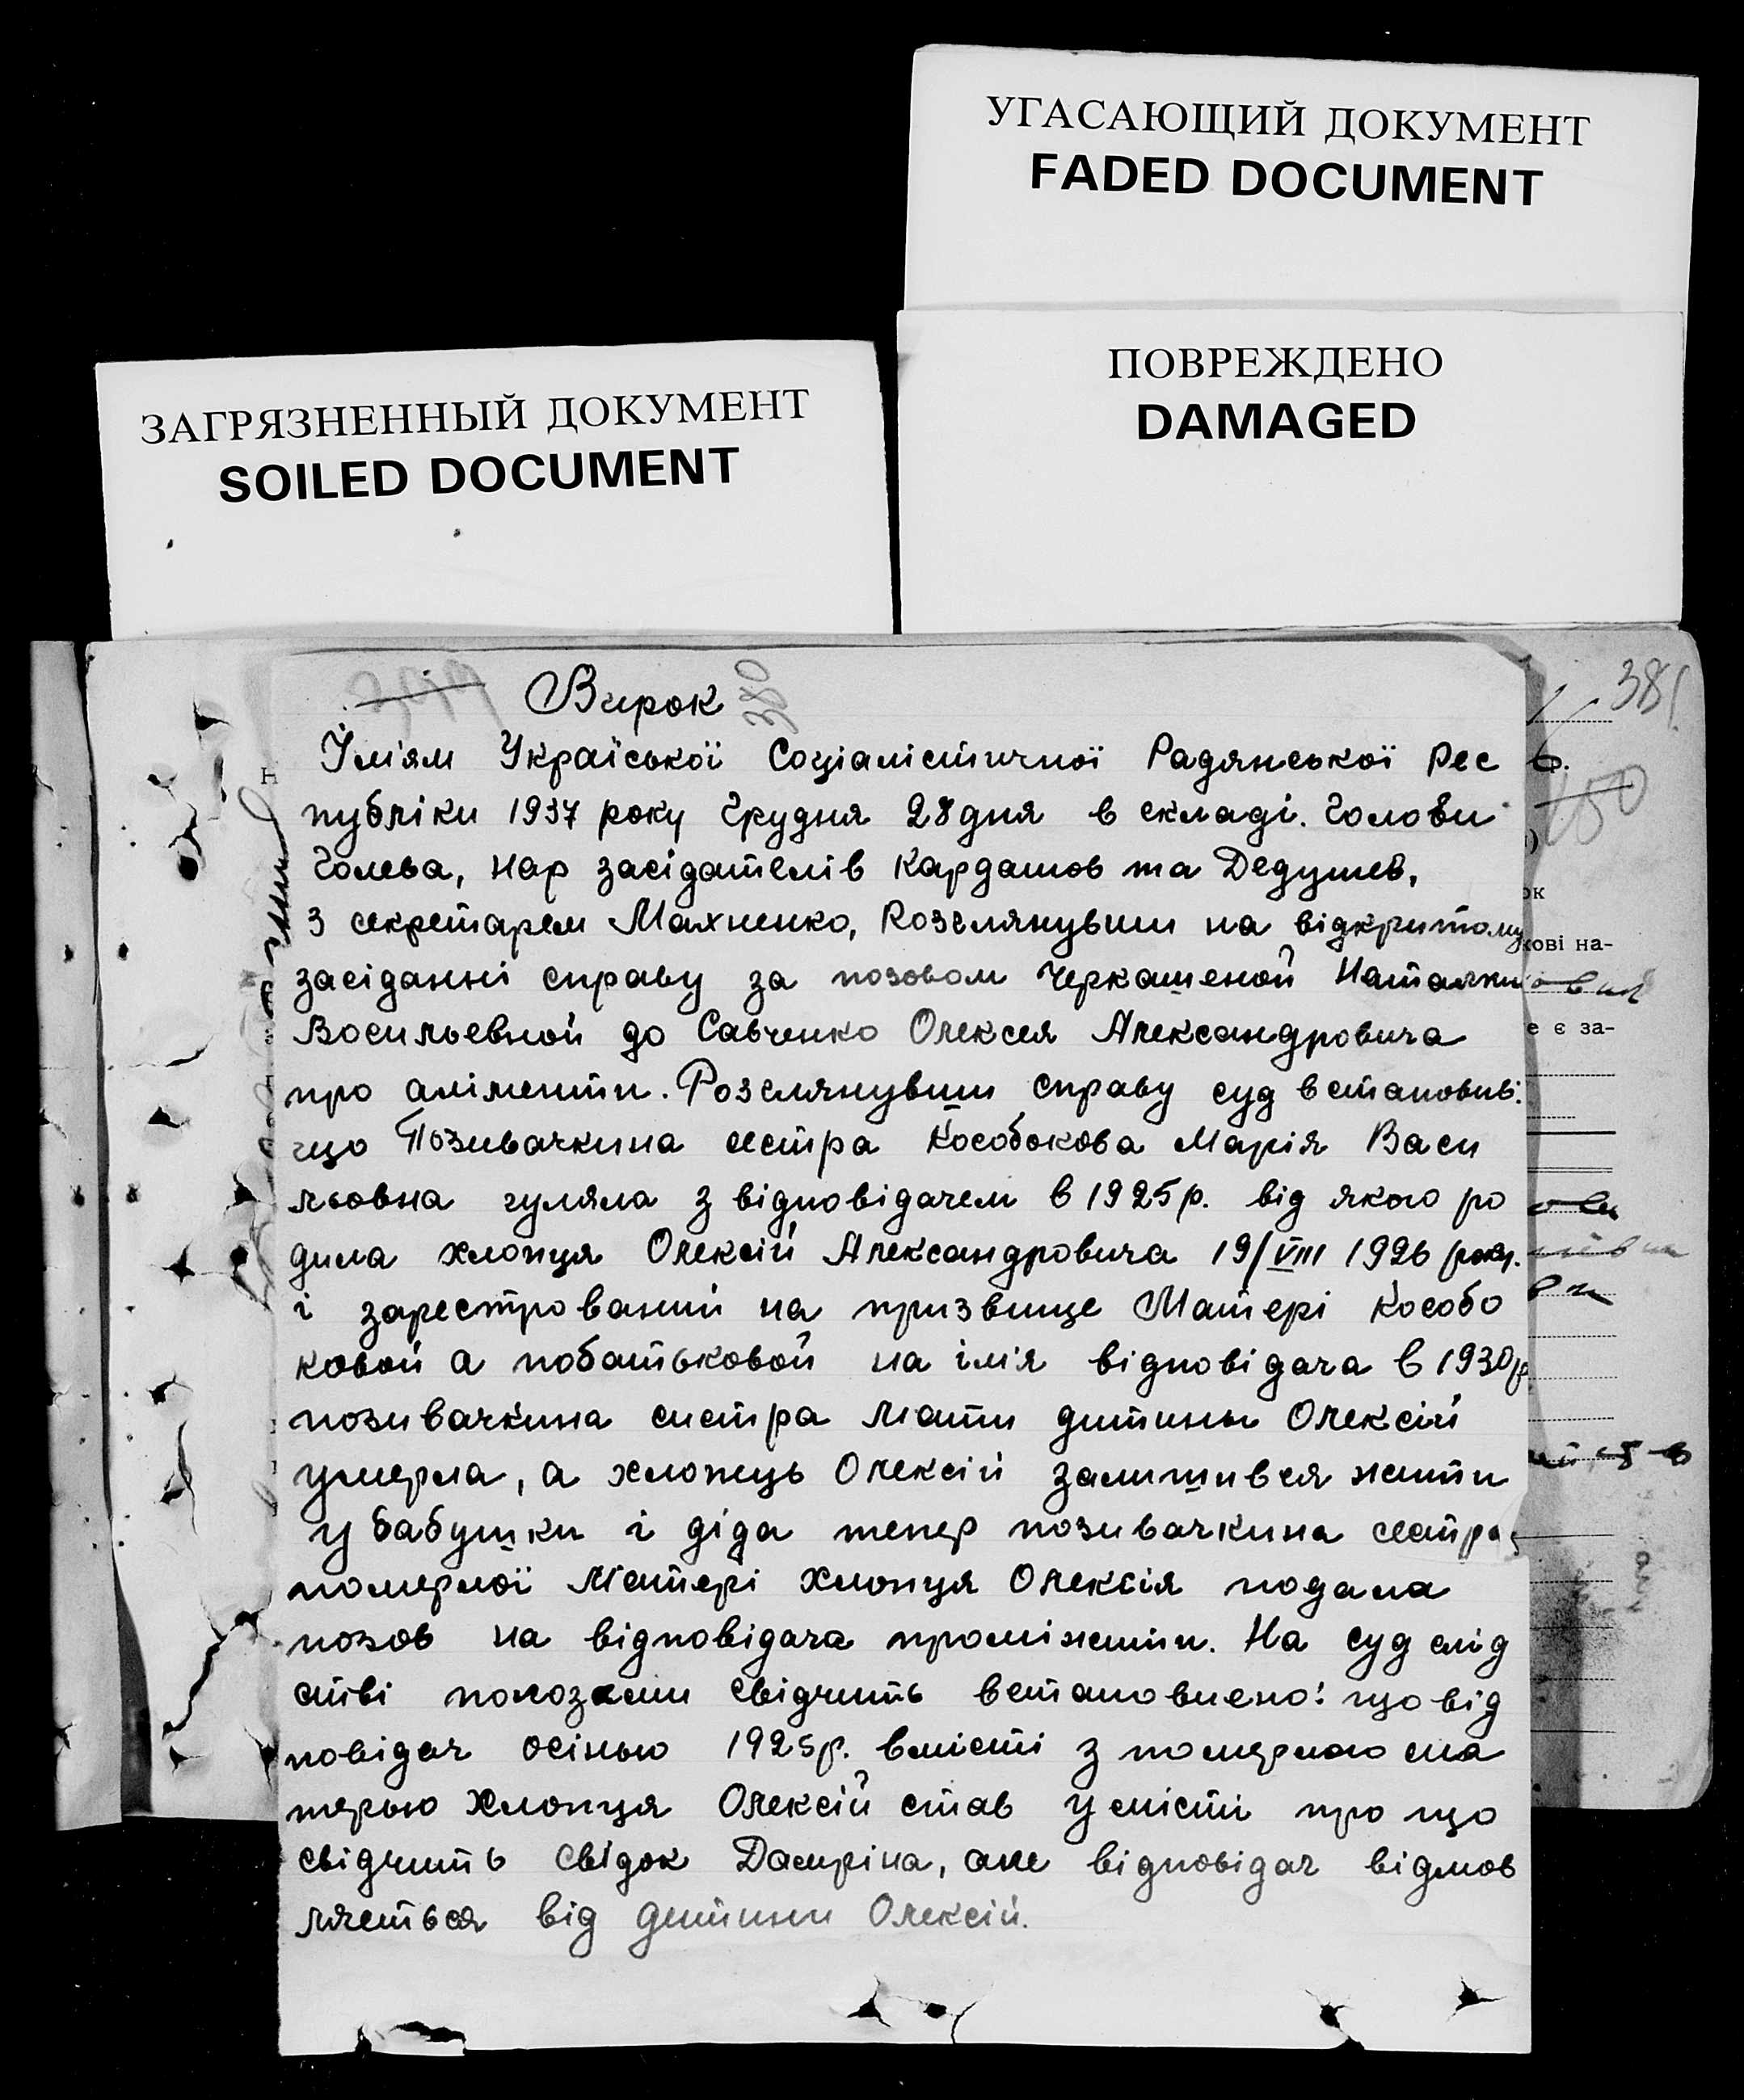 УГАСАЮЩИЙ ДОКУМЕНТ
FADED DOCUMENT
ПОВРЕЖДЕНО
DAMAGED
ЗАГРЯЗНЕННЫЙ ДОКУМЕНТ
SOILED DOCUMENT
381
Вирок 380
Ім'ям Україської Соціалістичної Радянської Рес
публіки 1937 року Грудня 28 дня в складі. Голови
Голева, нар засідателів Кардашов та Дедушев,
з секретарем Махненко, Розглянувши на відкритому
засіданні справу за позовом Черкашеной Наталки
Восильевной до Савченко Олексея Александровича
про аліменти. Розглянувши справу суд встановив:
що Позивачкина сестра Кособокова Марія Васи
льовна гуляла з відповідачем в 1925 р. від якого ро
дила хлопця Олексій Александровича 19/VIII 1926 року.
і зарестрований на призвище Матері Кособо
ковой а побатьковой на ім'я відповідача в 1930р
позивачкина систра мати дитины Олексій
умерла, а хлопець Олексій залишився жити
у бабушки і діда тепер позивачкина сестра
померлої Матері Хлопця Олексія подала
позов на відповідача проміжити. На суд слід
стві показами свідчить встановлено: що від
повідач осінью 1925р. вмісті з померлою ма
терью Хлопця Олексій став умісті про що
свідчить свідок Дамріна, але відповідач відмов
ляеться від детини Олексій.
150
ок
кові на-
е є за-